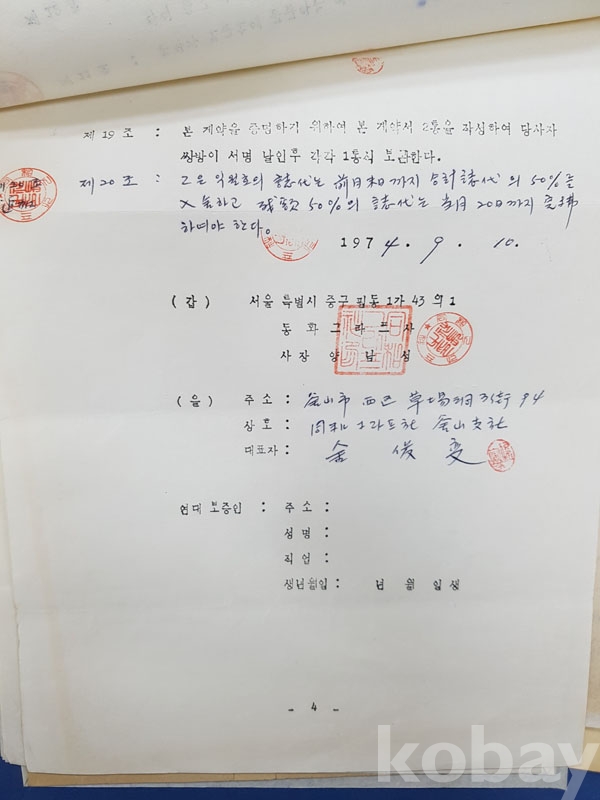 제 19 조 : 본 계약을 증명하기 위하여 본 계약서 2통을 작성하여 당사자
쌍방이 서명 날인후 각각 1통씩 보관한다.
제 20 조 : 乙은 익월호의 誌代는 前月末까지 合計誌代의 50%를
送金하고 残額 50%의 誌代는 当月 20日까지 支拂
하여야 한다。
197 4 . 9 . 10.
(갑) 서울 특별시 중구 필동 1가 43 의 1
동 화 그 라 프 사
사 장 양 남 성
(을) 주 소 : 釜山市 西区 草場洞 3街 94
상 호 : 同和 그라프社 釜山支社
대표자 : 金 俊 変
연대 보증인 : 주 소 :
성 명 :
직 업 :
생년월일 : 년 월 일생
- 4 -
kobay